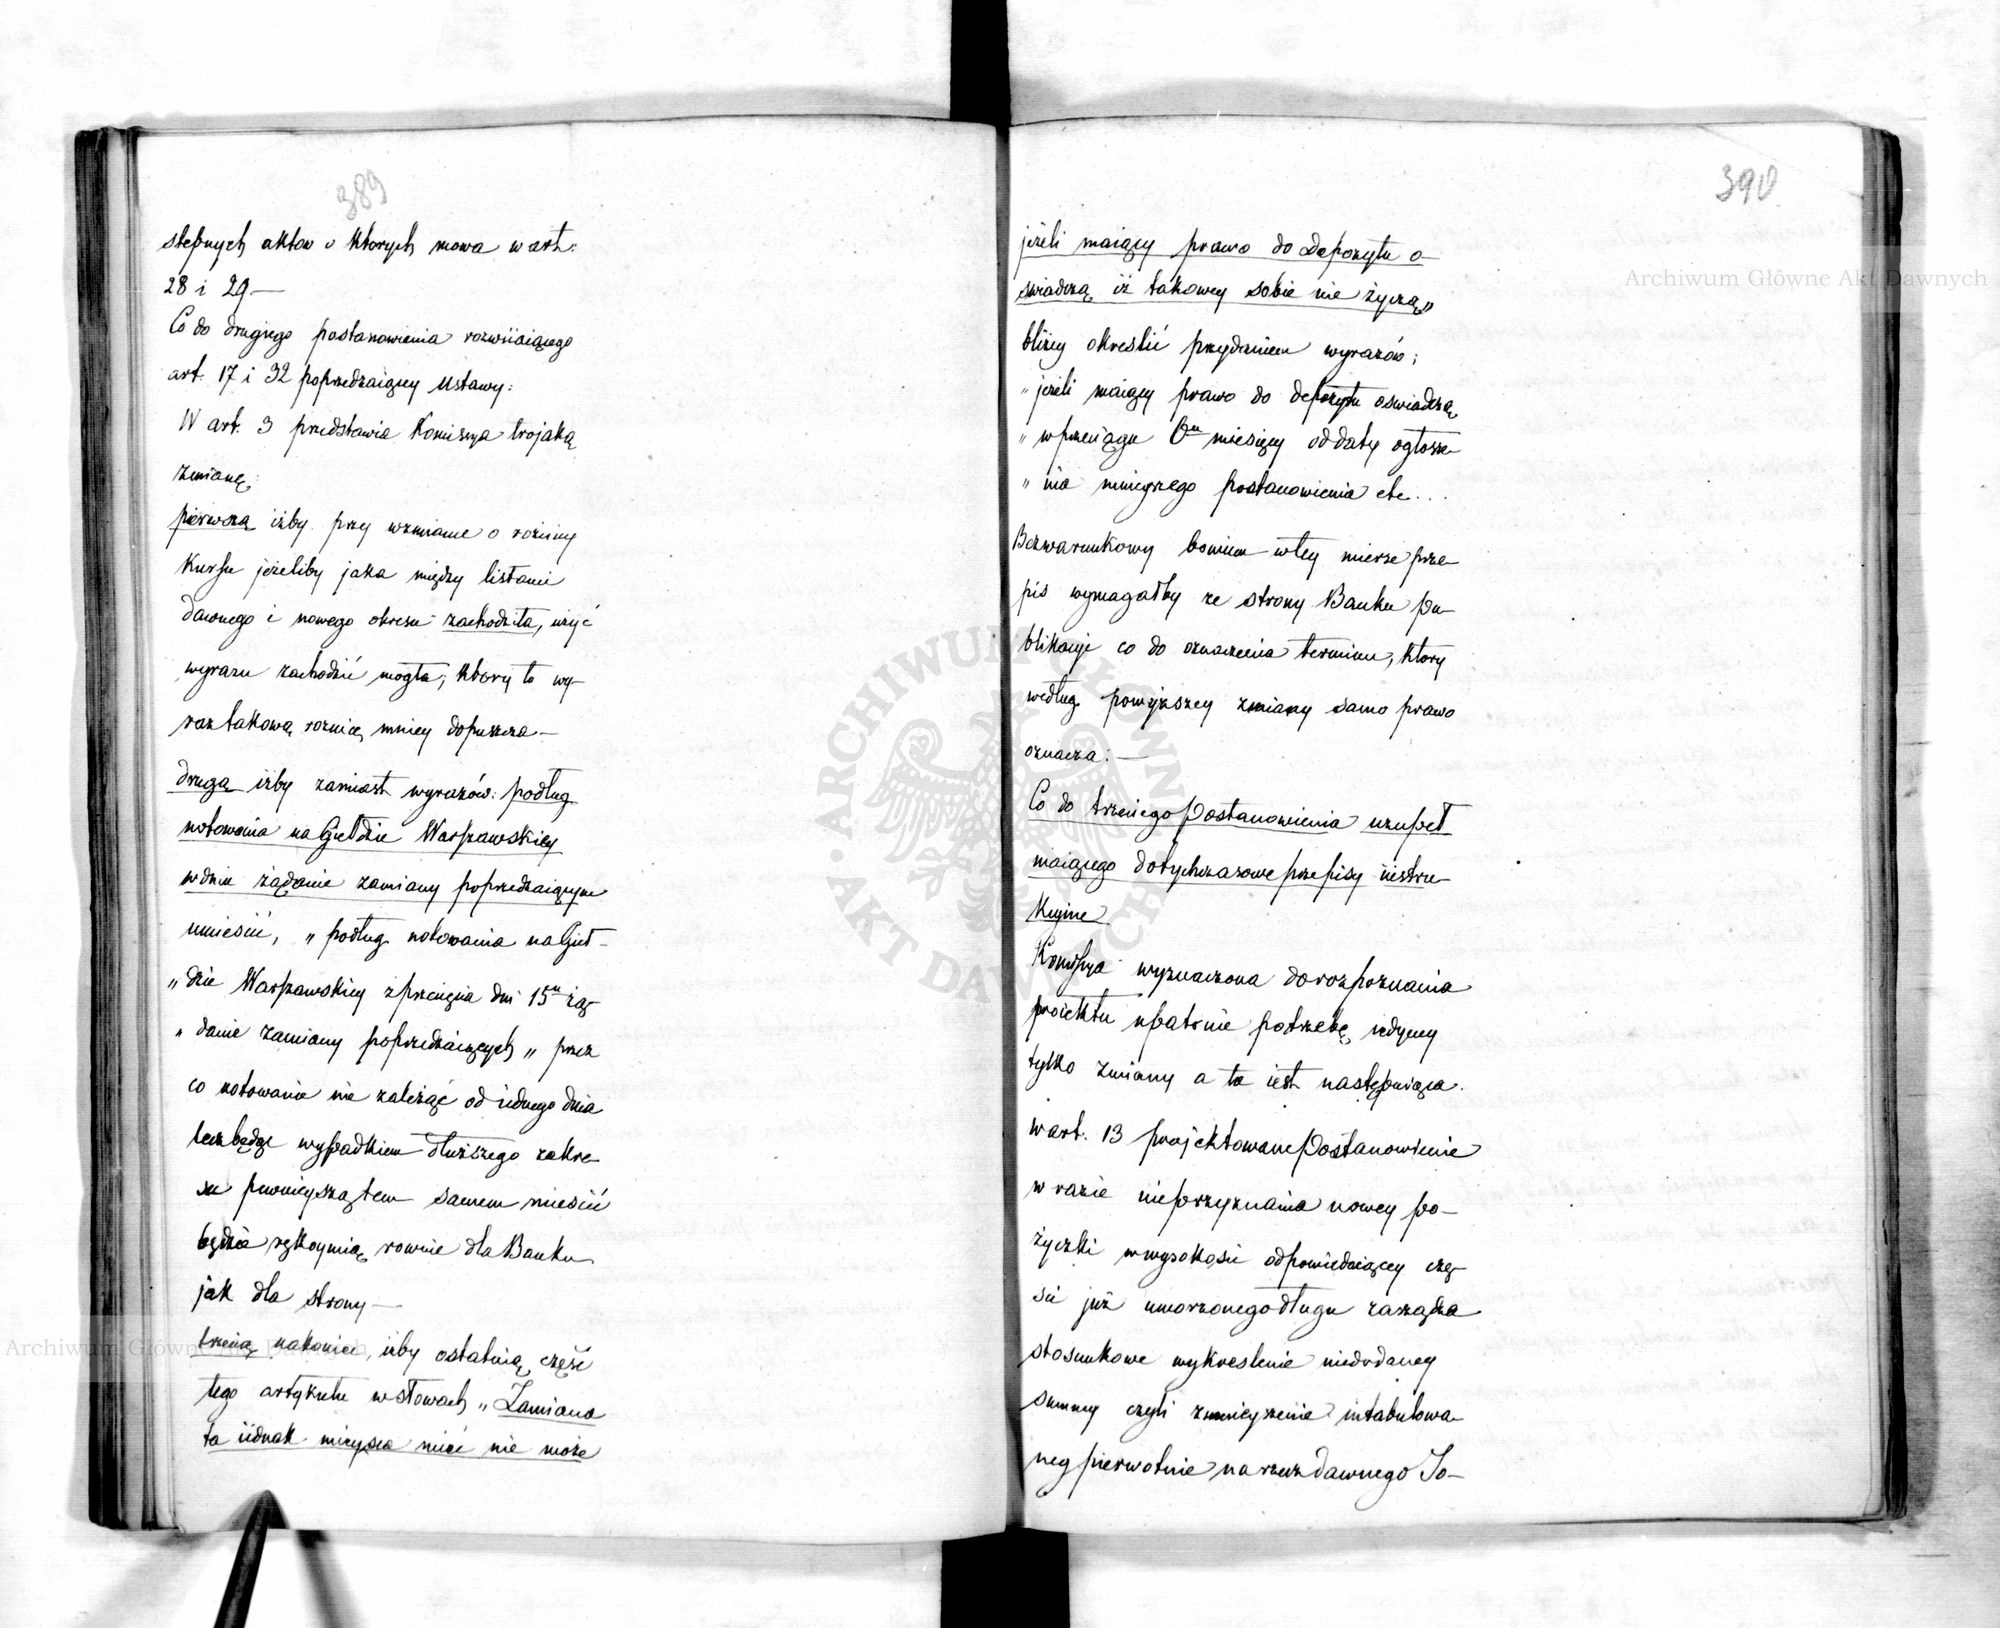 389
stępnych aktow o ktorych mowa w art:
28 i 29.—
Co do drugiego postanowienia rozwiiaiącego
art. 17 i 32 poprzedzaiącey Ustawy:
W art. 3 przedstawia Komissya trojaką
zmianę:
pierwszą iżby przy wzmiance o rożnicy
Kursu jeżeliby jaka między listami
dawnego i nowego okresu zachodziła, użyć
wyrazu zachodzić mogła; ktory to wy-
raz takową roznicę mniey dopuszcza—
drugą iżby zamiast wyrazów: podług
notowania na Giełdzie Warszawskiey
w dniu żądanie zamiany poprzedzaiącym
umieścić, „ podług notowania na Gieł-
„ dzie Warszawskiey z przeciągu dni 15u żą-
„ danie zamiany poprzedzaiących „ przez
co notowanie nie zależąc od iednego dnia
lecz będąc wypadkiem dłuższego zakre-
su pewnieyszą tem samem mieścić
będzie rękoymią rownie dla Banku
jak dla strony—
trzecią nakoniec, iżby ostatnią część
tego artykułu w słowach „ Zamiana
ta iednak mieysca mieć nie może
390
jeżeli maiący prawo do Depozytu o-
swiadczą iż takowey sobie nie życzą„
bliżey okreslić przydaniem wyrazów;
„ jeżeli maiący prawo do depozytu oswiadczą
„ w przeciągu 6u miesięcy od daty ogłosze-
„ nia ninieyszego postanowienia etc...
Bezwarunkowy bowiem w tey mierze prze-
pis wymagałby ze strony Banku pu-
blikacyi co do oznaczenia terminu, ktory
według powyższey zmiany samo prawo
oznacza:—
Co do trzeciego Postanowienia uzupeł
niaiącego dotychczasowe przepisy instru-
kcyine
Komissya wyznaczona do rozpoznania
proiektu upatruie potrzebę iedyney
tylko zmiany a ta iest następuiąca.
w art. 13 projektowane Postanowienie
w razie nieprzyznania nowey po-
życzki w wysokości odpowiedaiącey czę-
ści już umorzonego długu zarządza
stosunkowe wykreslenie niedodaney
summy czyli zmnieyszenie intabulowa-
ney pierwotnie na rzecz dawnego To-
Archiwum Główne Akt Dawnych
Archiwum Główne Akt Dawnych
ARCHIWUM GŁÓWNE AKT DAWNYCH